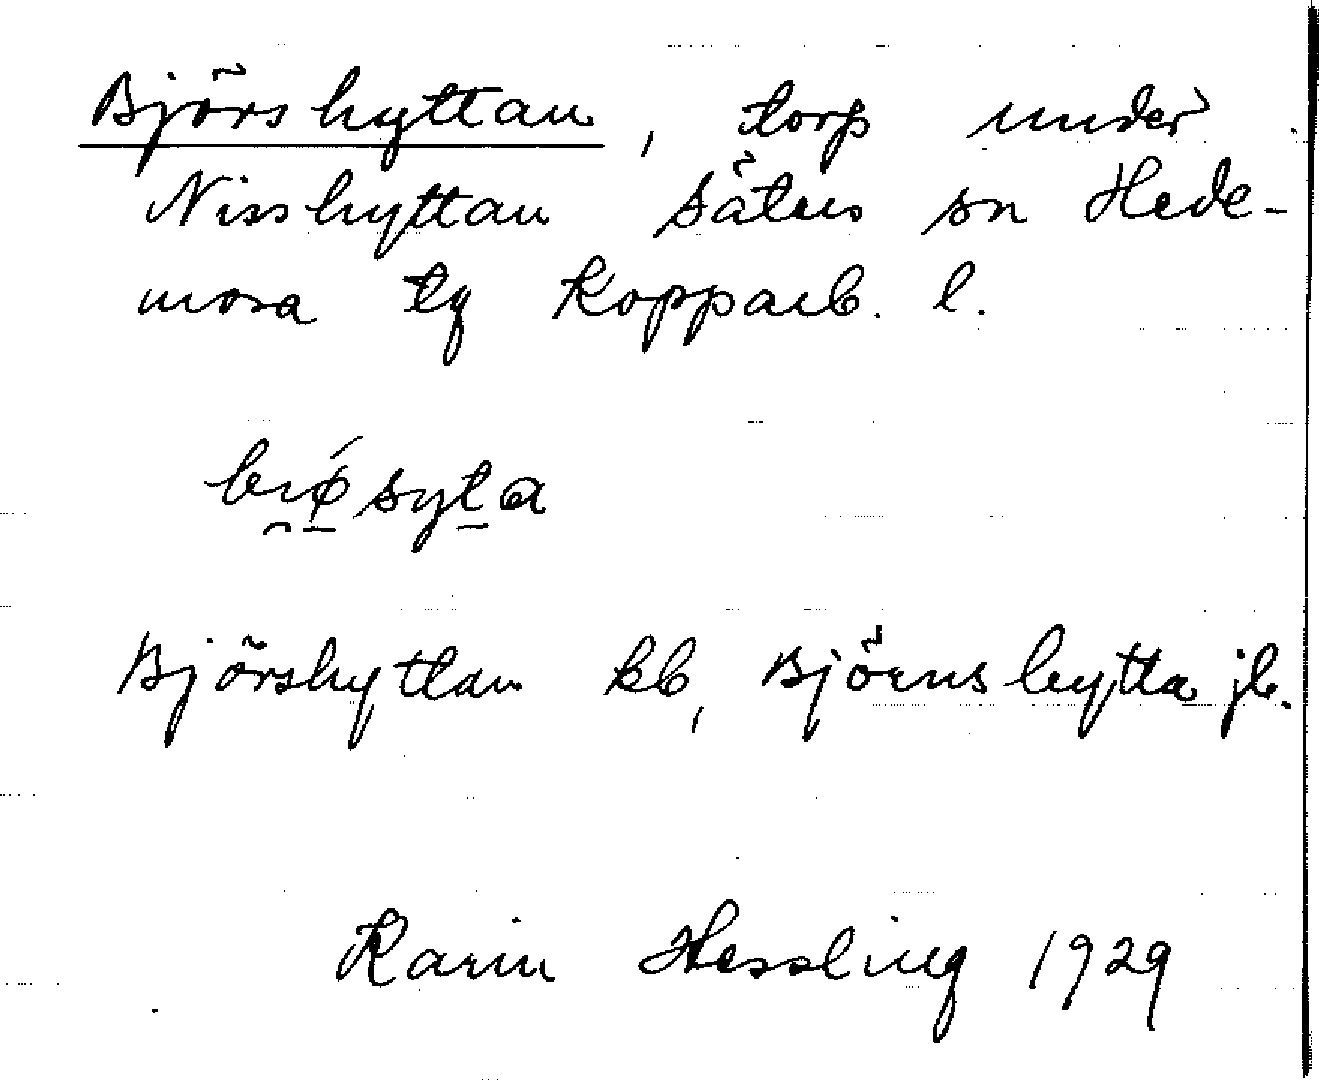 Björshyttan, torp under
Nisshyttan Säters sn Hede-
mora tg Kopparb. l.
bıǿsyta
Björshyttan kb, Björnshytta jb.
Karin Hessling 1929